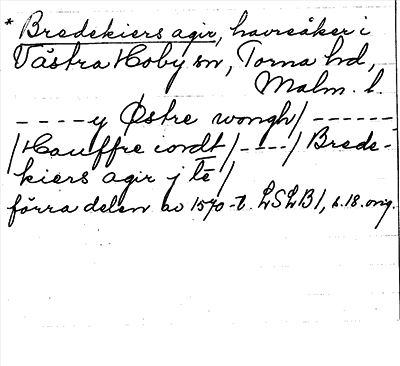 * Bredekiers agir, havreåker i
Västra Hoby sn, Torna hd,
Malm. l.
- - - - y Østre wongh / - - - - - -
/ Hauffre iordt / - - - - / Brede-
kiers agir j tē /
förra delen av 1570-t. LSLB 1, s. 18. orig.